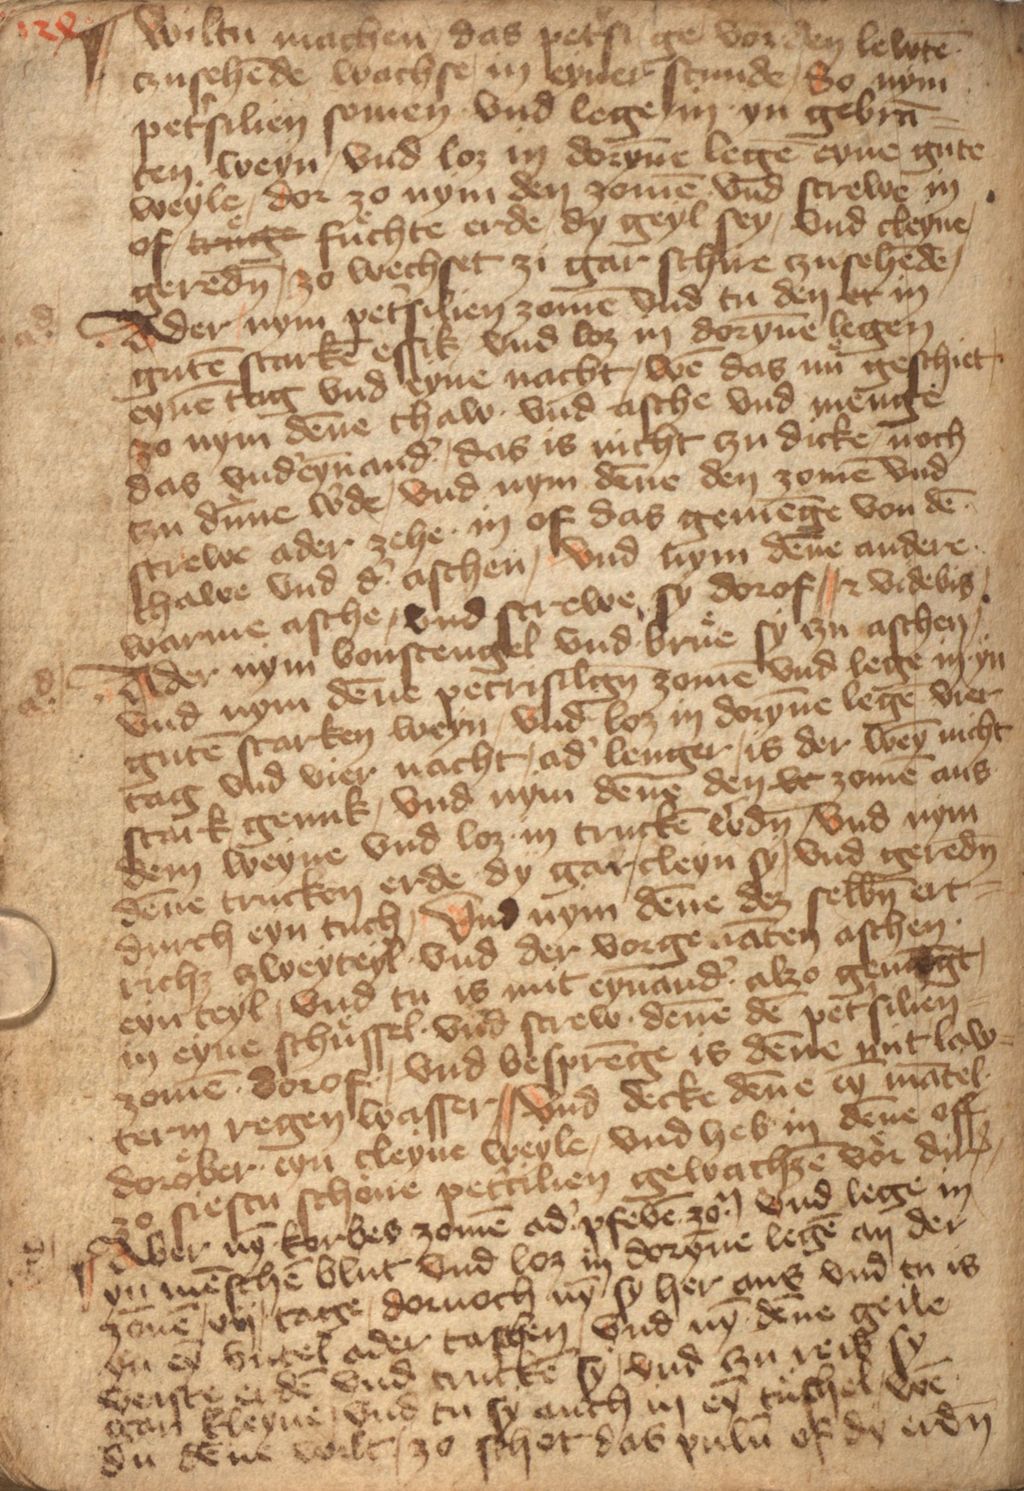 Wiltu machen das petsi ge vor den lewtē
czusehēde wachse in eyner stunde So nym
pet'silien somen vnd lege in yn gebrā-
ten weyn vnd loz in doryne legē eyne gute
weyle dor zo nym den zomē vnd strewe in
of fuchte erde dy geyl sey vnd cleyne
geredn̄ zo wechset zi gar schire czusehēde
Ader nym pet'silien zomē vnd tu den in
gutē starkē essik vnd loz in doryne legen
eynē tag vnd eyne nacht wē das nu geschiet
zo nym dēne thaw vnd asche vnd menge
das vnd'eynand' das is nicht zu dicke noch
zu dūne w'de vnd nym dēne den zomē vnd
strewe ader zehe in of das gemēge von dē
thawe vnd d' aschen vnd nym dēne andere
warme asche vnd strewe sy dorof videbis
Ader nym bonstengel vnd brue sy zu aschen
vnd nym dēne petrisilgn̄ zomē vnd lege in yn
gutē starken weyn vnd loz in doryne legē vier
tag vnd vier nacht ad' lenger is der wey nicht
stark genuk vnd nym dēne den zomē aus
dem weyne vnd loz in truckē w'dn̄ vnd nym
dēne trucken erde dy gar cleyn sy vnd geredn̄
durch eyn tuch vnd nym dēne dez selbn̄ ert-
richz zweyteyl vnd der vorge nāten aschen
eyn teyl vnd tu is mit eynand' alzo gemēgt
in eyne schussel vnd strew dēne dē pet'silien-
zomē dorof vnd besprēge is dēne mit law-
term regen wasser vnd decke dēne ey mātel
dorober eyn cleyne weyle vnd heb in dēne off
zo siestu schone pet'cilien gewachzē vor dir
Aber ny korbes zomē ad' pfebē zo vnd lege in
yn mēschē blut vnd loz in doryne legē an der
zonē vij tage dornoch ny sy her aus vnd tu is
yn ey butel ader taschen vnd ny dēne geile
veiste erdē vnd truckē sy vnd zu reib sy
gar kleyne vnd tu sy auch in ey tuchel wē
du dēne wilt zo schet das pulu' of dy erdn̄